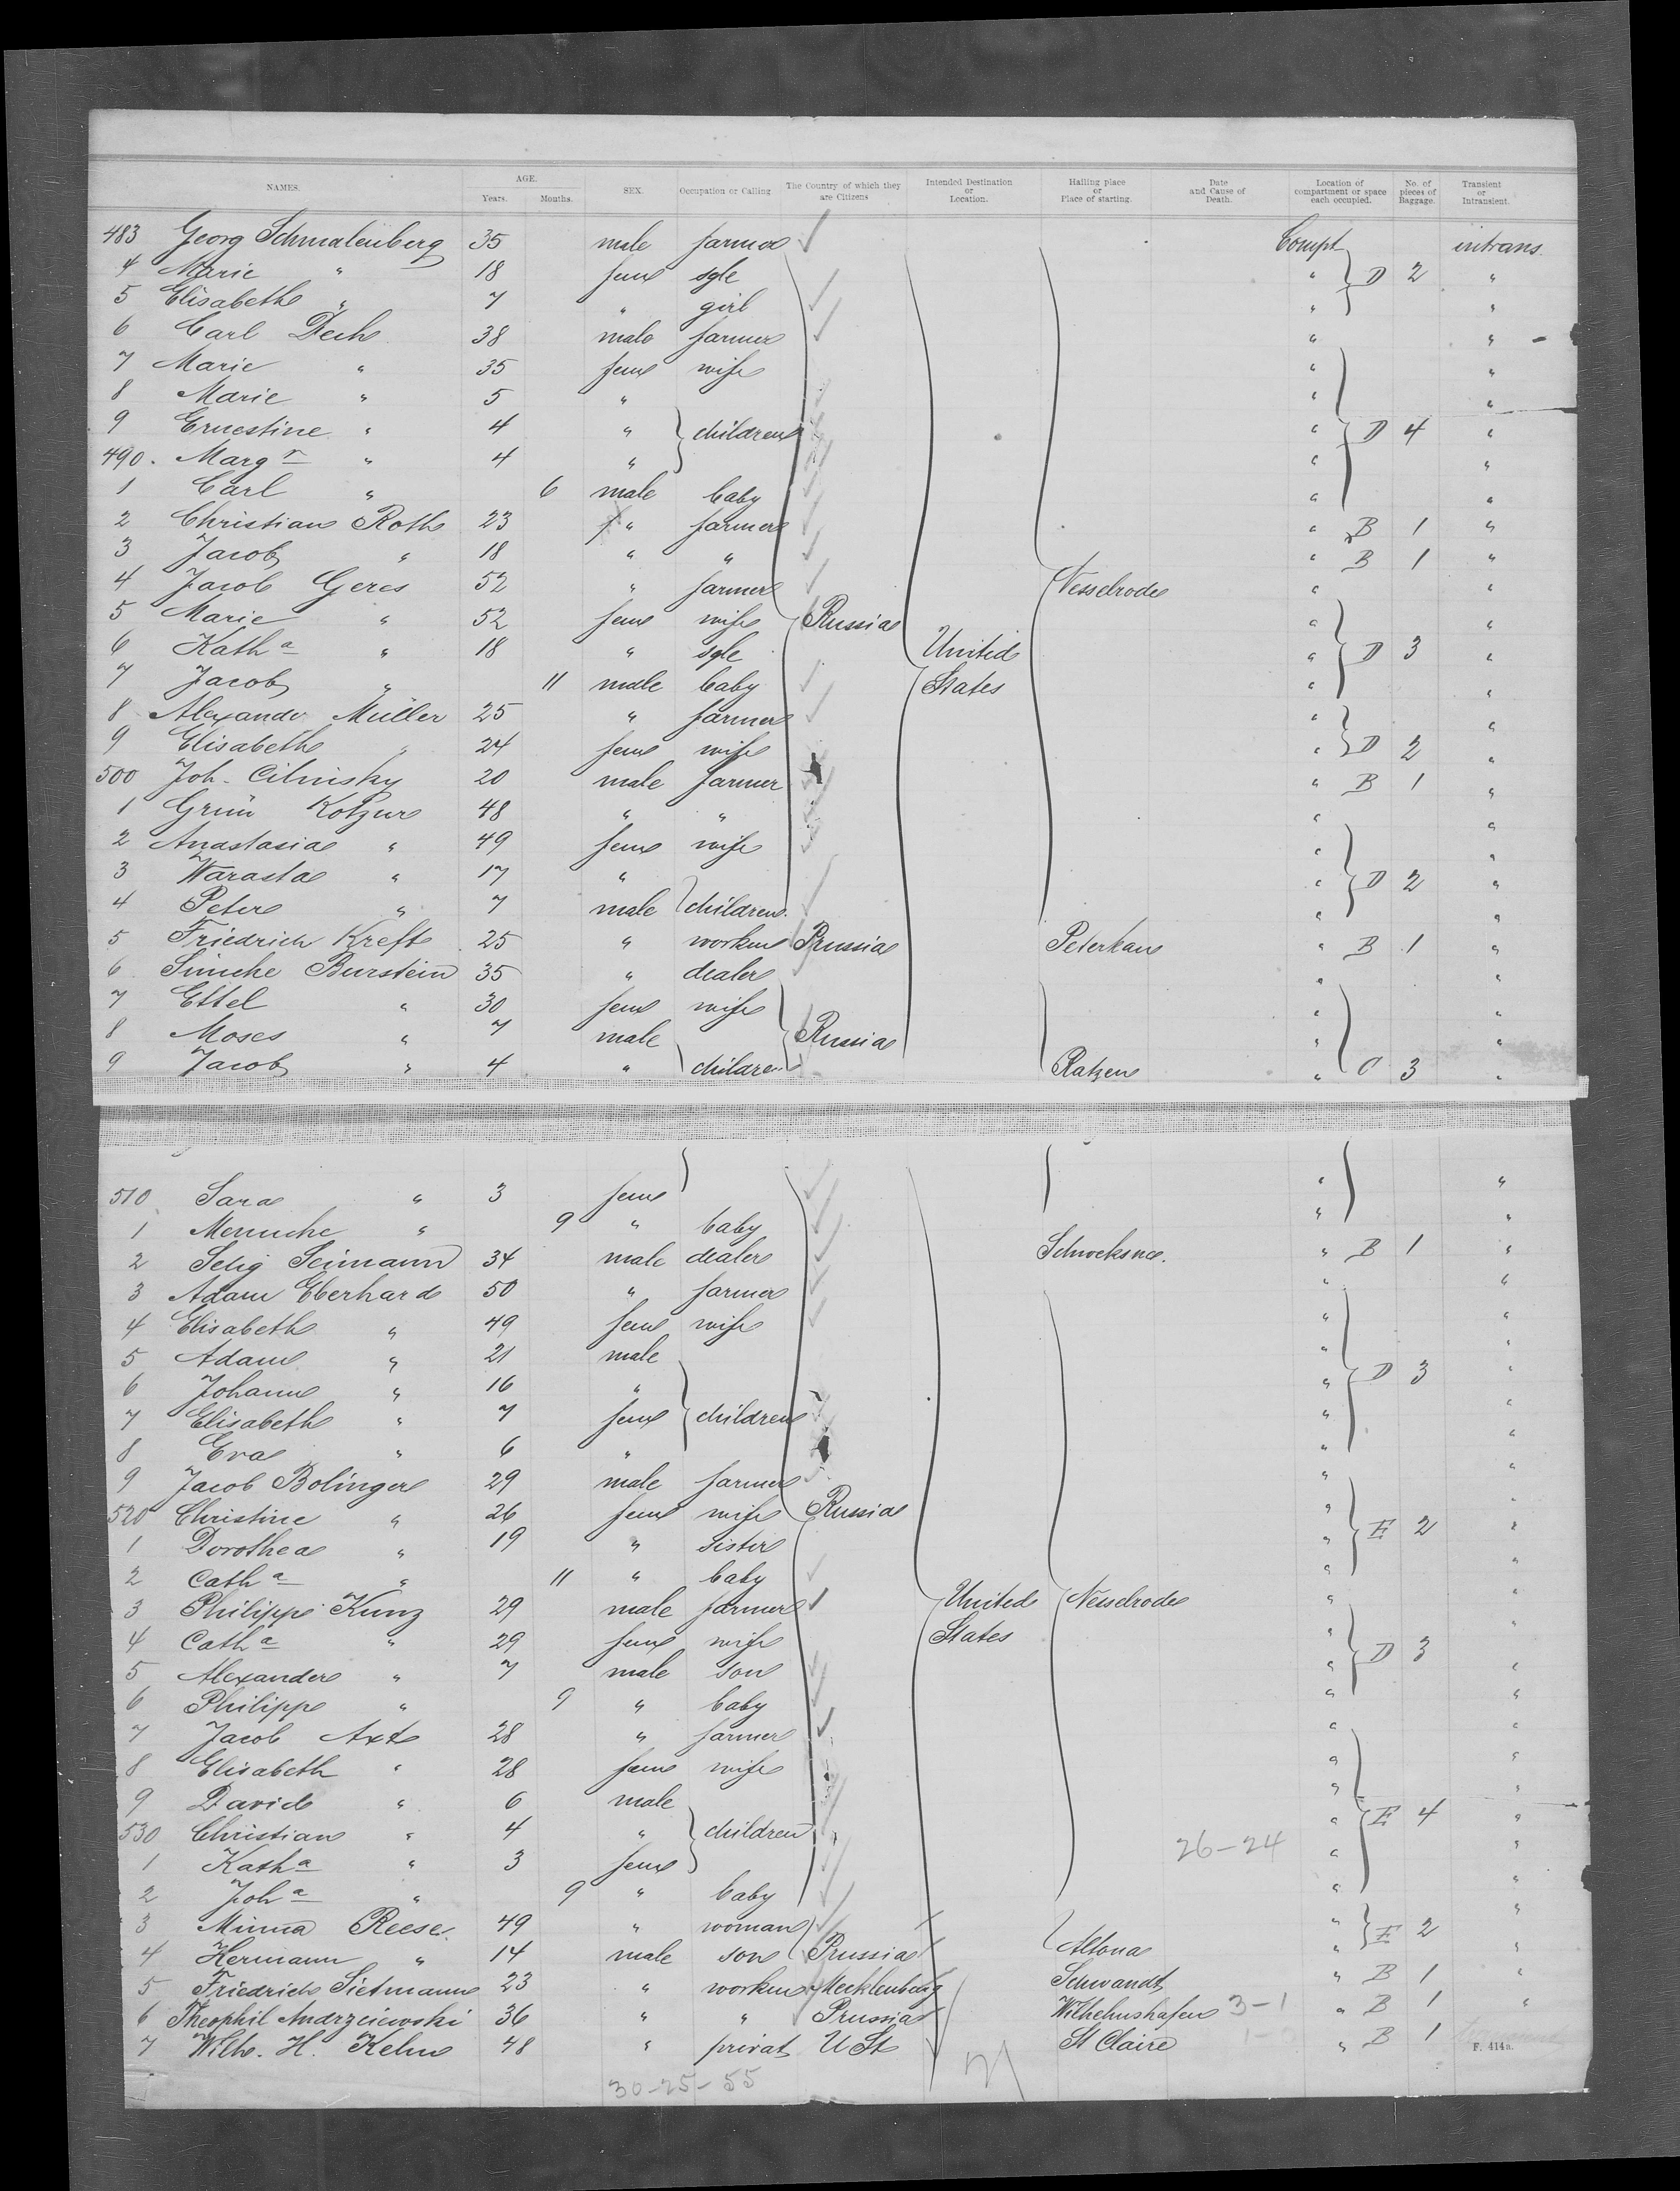 NAMES. AGE. Years. Months. SEX. Occupation or Calling The Country of which they are Citizens Intended Destination or Location. Hailing place or Place of starting. Date and Cause of Death. Location of compartment or space each occupied. No. of pieces of Baggage. Transient or Intransient.
483 Georg Schmalenberg 35 male farmer Compt intrans.
4 Marie " 18 fem sgle " D 2 "
5 Elisabeth " 7 " girl " "
6 Carl Dech 38 male farmer " "
7 Marie " 35 fem wife " "
8 Marie " 5 " " "
9 Ernestine " 4 " children " D 4 "
490. Margr " 4 " " "
1 Carl " 6 male baby " "
2 Christian Roth 23 " farmer " B 1 "
3 Jacob " 18 " " " B 1 "
4 Jacob Geres 52 " farmer Nesselrode " "
5 Marie " 52 fem wife Russia " "
6 Katha " 18 " sgle United " D 3 "
7 Jacob " 11 male baby States " "
8 Alexander Müller 25 " farmer " "
9 Elisabeth " 24 fem wife " D 2 "
500 Joh. Cilinsky 20 male farmer " B 1 "
1 Grün Kotzur 48 " " " "
2 Anastasia " 49 fem wife " "
3 Warasta " 17 " " D 2 "
4 Peter " 7 male children " "
5 Friedrich Kreft 25 " workm Prussia Peterkau " B 1 "
6 Simche Burstein 35 " dealer " "
7 Ettel " 30 fem wife " "
8 Moses " 7 male Russia " "
9 Jacob " 4 " children Ratzen " C 3 "
510 Sara " 3 fem " "
1 Menuche " 9 " baby " "
2 Selig Seimann 34 male dealer " B 1 "
3 Adam Eberhard 50 " farmer " "
4 Elisabeth " 49 fem wife " "
5 Adam " 21 male " "
6 Johann " 16 " " D 3 "
7 Elisabeth " 7 fem children " "
8 Eva " 6 " " "
9 Jacob Bolinger 29 male farmer " "
520 Christine " 26 fem wife Russia " "
1 Dorothea " 19 " sister " E 2 "
2 Catha " 11 " baby " "
3 Philipp Kunz 29 male farmer United Nesselrode " "
4 Catha " 29 fem wife States " "
5 Alexander " 7 male son " D 3 "
6 Philipp " 9 " baby " "
7 Jacob Axt 28 " farmer " "
8 Elisabeth " 28 fem wife " "
9 David " 6 male " "
530 Christian " 4 " children " E 4 "
1 Katha " 3 fem 26-24 " "
2 Joha " 9 " baby " "
3 Minna Reese 49 " woman " E 2 "
4 Hermann " 14 male son Prussia Altona " "
5 Friedrich Sietmann 23 " workm Mecklenburg Schwandt " B 1 "
6 Theophil Andrzeiewski 36 " " Prussia Wilhelmshafen 3-1 " B 1 "
7 Wilh. H. Kehn 48 " privat U St St Claire " B 1
F. 414a.
30-25-55